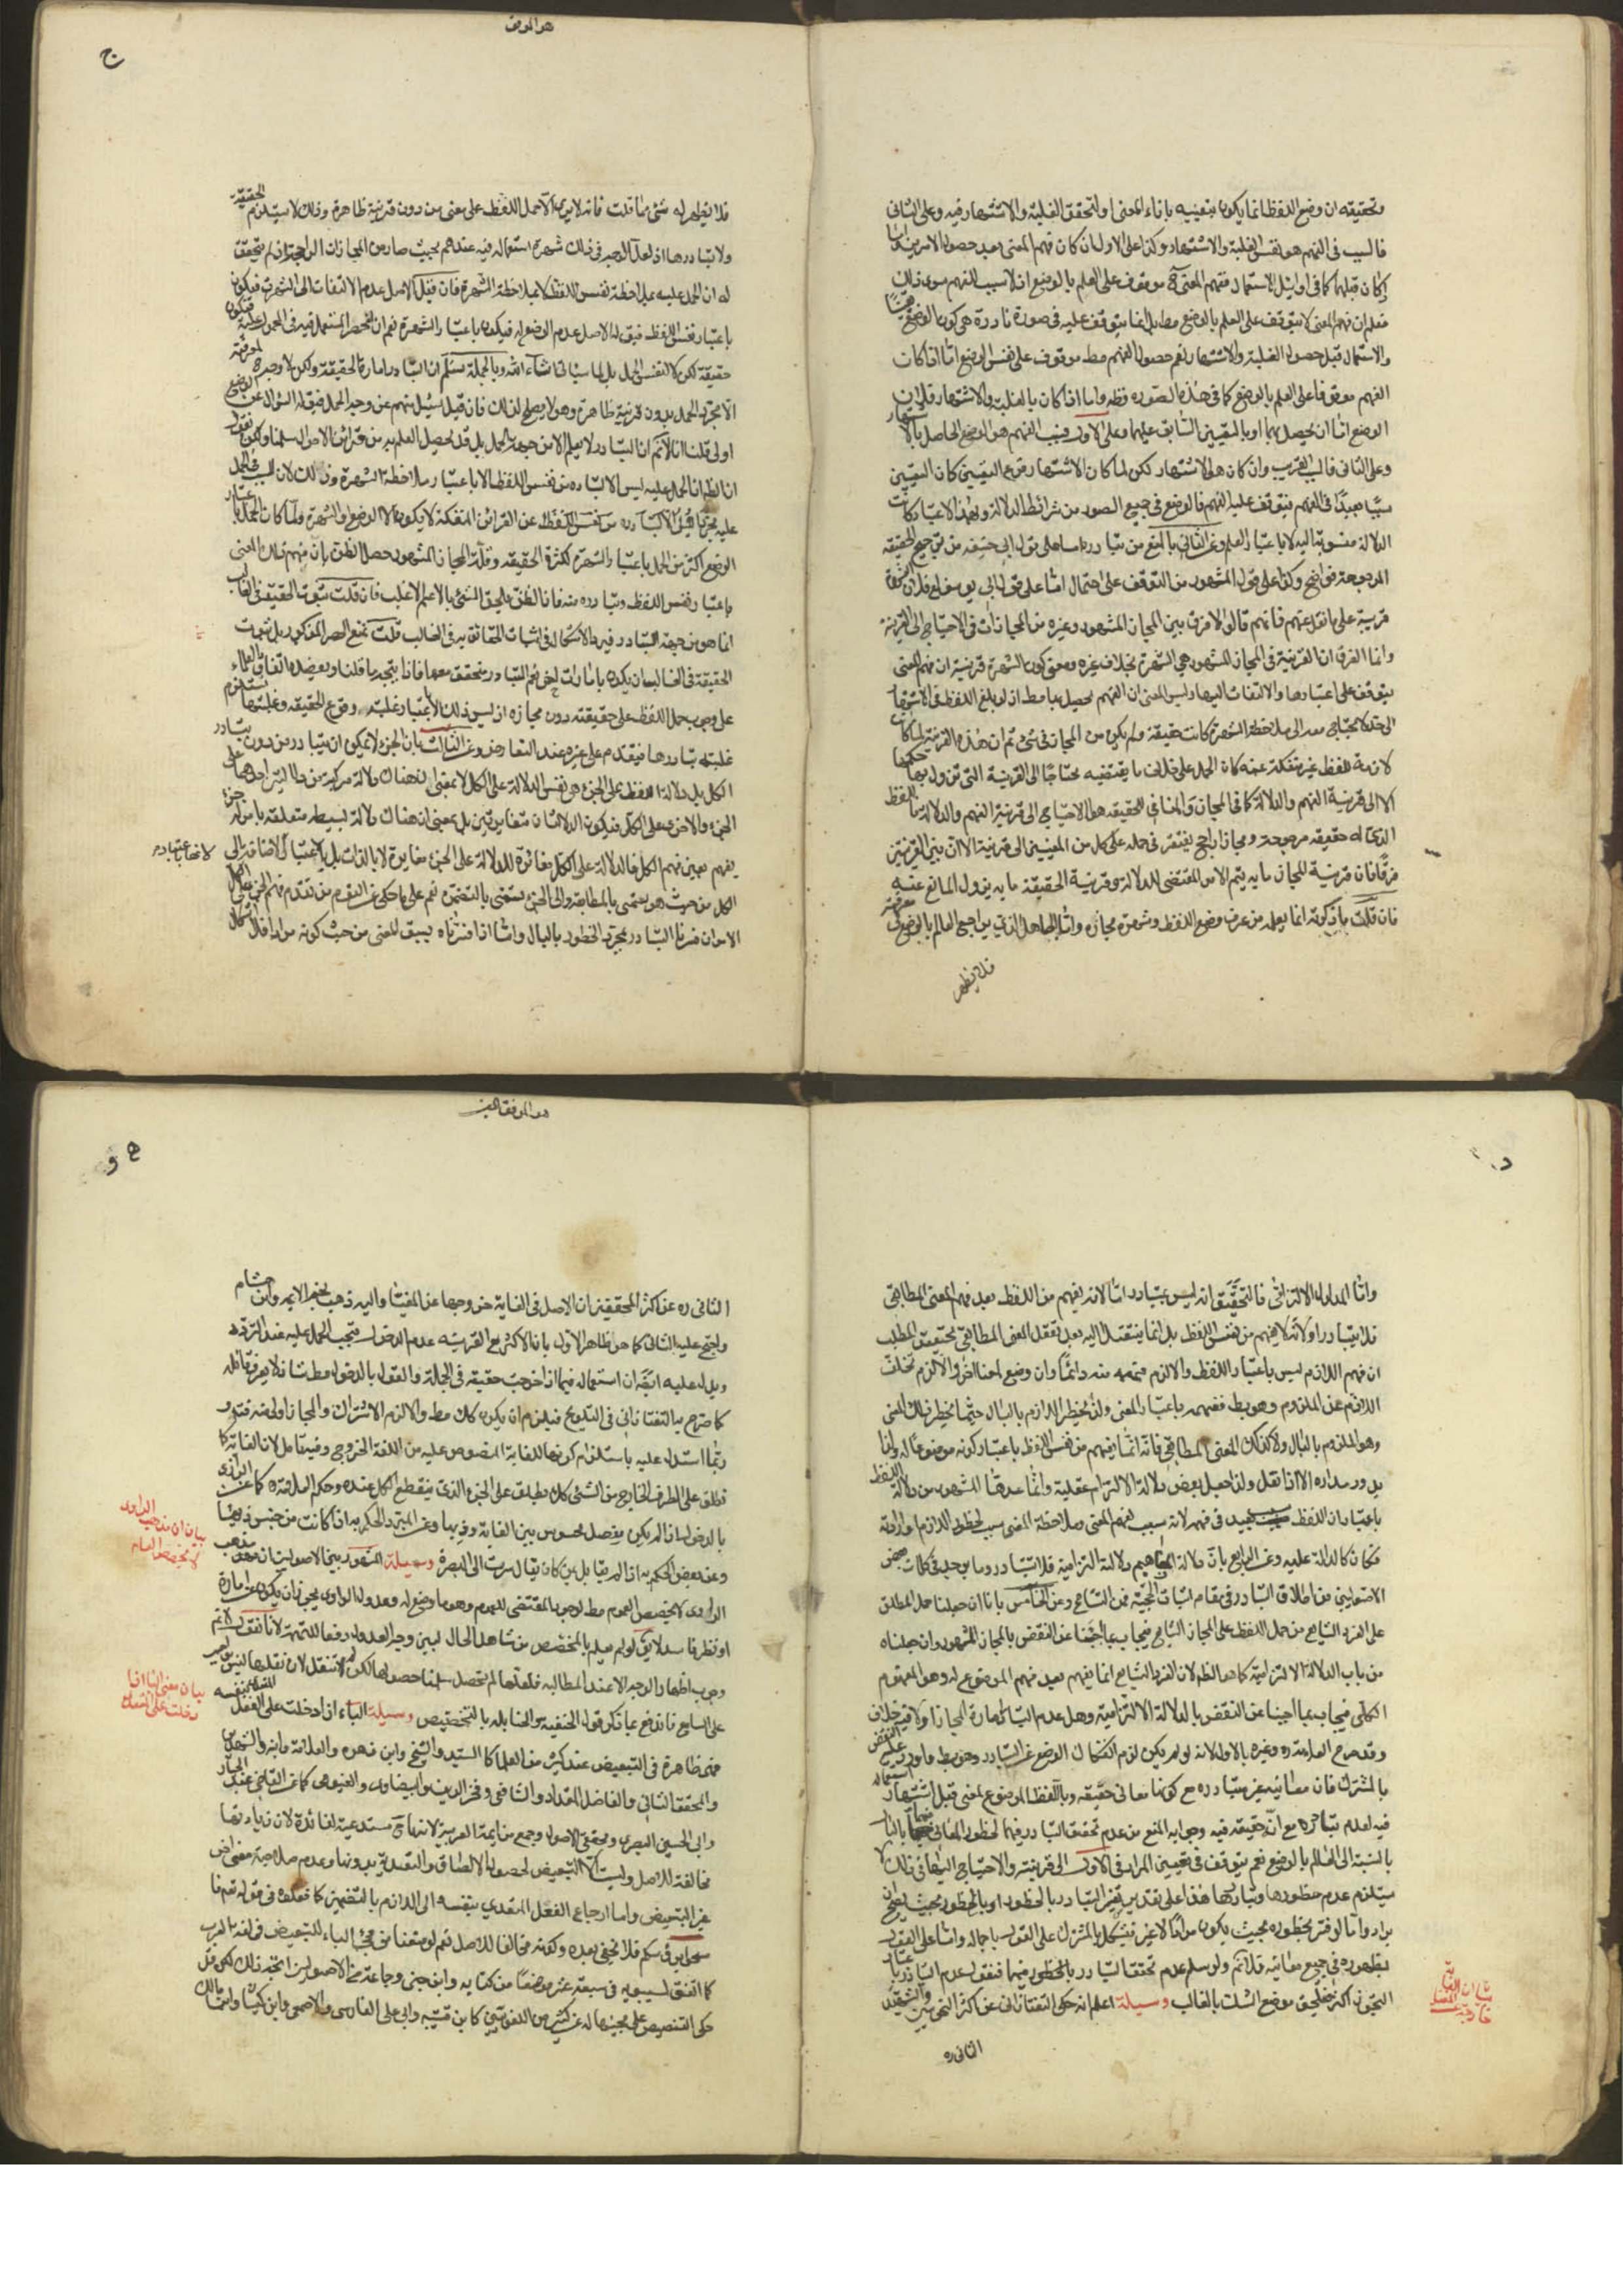 وتحقيقه ان وضع اللفظ انما يكون بتعيينه بازاء المعنى او لتحقق الغلبة والاشتهار فيه وعلى الثاني
فالسبب في الفهم هو نفس الغلبة والاشتهار وكذا على الاول ان كان فهم المعنى بعد حصول الامرين
كان قبلهما كما في اوائل الاستعمال ففهم المعنى ح موقوف على العلم بالوضع اذ لا سبب للفهم سوى ذلك
فعلم ان فهم المعنى لا يتوقف على العلم بالوضع مط بل انما يتوقف عليه في صورة نادرة هي كون الوضع
والاستعمال قبل حصول الغلبة والاشتهار نعم حصول الفهم مط موقوف على نفس الوضع اما اذا كان
الفهم موقوفا على العلم بالوضع كما في هذه الصورة فظ واما اذا كان بالغلبة والاشتهار فلان
الوضع اما ان يحصل بهما او بالتعيين السابق عليهما وعلى الاول فسبب الفهم هو الوضع الحاصل بالاشتهار
وعلى الثاني فالسبب القريب وان كان هو الاشتهار لكن لما كان الاشتهار فرع التعيين كان التعيين
سببا بعيدا في الفهم فيتوقف عليه الفهم فالوضع في جميع الصور من شرائط الدلالة وبهذا الاعتبار كانت
الدلالة منسوبة اليه لا باعتبار العلم وعن الثاني بالمنع من تبادره اما على قول ابي حنيفه من ترجيح الحقيقه
المرجوحة فواضح وكذا على قول المشهور من التوقف على احتمال اما على قول ابي يوسف فلان الشهرة
قرينة على ما نقل عنهم فانهم قالوا لا فرق بين المجاز المشهور وغيره من المجازات في الاحتياج الى القرينة
وانما الفرق ان القرينة في المجاز المشهور هي الشهرة بخلاف غيره ومعنى كون الشهرة قرينة ان فهم المعنى
يتوقف على اعتبارها والالتفات اليها وليس المعنى ان الفهم يحصل بها مط اذ لو بلغ اللفظ في الاشتهار
الى حد لا يحتاج معه الى ملاحظة الشهرة كانت حقيقة ولم يكن من المجاز في شئ ثم ان هذه القرينة لما كانت
لازمة للفظ غير منفكة عنه كان الحمل على خلاف ما يقتضيه محتاجا الى القرينة التي تزول بها حكمها
لا الى قرينة الفهم والدلالة كما في المجاز والمنافي للحقيقه هو الاحتياج الى قرينة الفهم والدلالة
الذي له حقيقه مرجوحة ومجاز راجح يفتقر في حمله على كل من المعنيين الى قرينة الا ان بين القرينتين
فرقا فان قرينة المجاز ما به يتم الامر المقتضي للدلالة وقرينة الحقيقة ما به يزول المانع عنه
فان قلت ما ذكرته انما يعلمه من عرف وضع اللفظ وشهرة مجازه واما الجاهل الذي يراجع العالم بالوضع
فلا يظهر
هو الموفق
ج
فلا يظهر له شئ مما قلت فانه لا يرى الا حمل اللفظ على معنى من دون قرينة ظاهرة وذلك لا يستلزم الحقيقة
ولا تبادرها اذ لعل الوجه في ذلك شهرة استعماله فيه عندهم بحيث صار من المجاز الراجح
له ان الحمل عليه بملاحظة نفس اللفظ لا بملاحظة الشهرة فان قيل الاصل عدم الالتفات الى الشهرة فيكون
باعتبار نفس اللفظ فيق له الاصل عدم الوضع له فيكون باعتبار الشهرة نعم ان انحصر المستعمل فيه في المحمول عليه فيكون
حقيقة لكن لا لنفس الحمل بل لما سياتي انشاء الله وبالجملة سلم ان التبادر امارة الحقيقة ولكن لا وجه لمعرفته
الا مجرد الحمل بدون قرينة ظاهرة وهو لا يصلح لذلك فان قيل نسئل منهم عن وجه الحمل فيق له السؤال عن الوضع
اولى قلنا انا لا نم ان التبادر لا يعلم الا من جهة الحمل بل قد يحصل العلم به من قرائن الاحوال سلمنا ولكن نقول
ان الظ ان الحمل عليه ليس الا لتبادره من نفس اللفظ لا باعتبار ملاحظة الشهرة وذلك لان السبب في الحمل
الوضع اكثر من الحمل باعتبار الشهرة لكثرة الحقيقه وقلة المجاز المشهور حصل الظن بان فهم ذلك المعنى
باعتبار نفس اللفظ وتبادره منه فان الظن يلحق الشئ بالاعم الاغلب فان قلت ثبوت الحقيقة في الغالب
انما هو من جهة التبادر فيه والاشكال في اثبات الحقائق به في الغالب قلت نمنع الحصر المذكور بل ثبوت
الحقيقة في الغالب ان يكون بامارات اخرى نعم التبادر متحقق معها فاذا يتجه ما قلنا ويعضده اتفاق العلماء
على وجوب حمل اللفظ على حقيقته دون مجازه اذ ليس ذلك الا باعتبار غلبة وقوع الحقيقه وغلبتها تستلزم
غلبة تبادرها فيقدم على غيره عند التعارض وعن الثالث بان الجزء لا يمكن ان يتبادر من دون تبادر
الكل بل دلالة اللفظ على الجزء هي نفس الدلالة على الكل لا بمعنى ان هناك دلالة مركبة من دلالتين احدهما على
الجزء والاخرى على الكل فيكون الدلالتان متغايرتين بل بمعنى ان هناك دلالة بسيطه متعلقه بامر له جزء
يفهم بعين فهم الكل فالدلالة على الكل مغائرة للدلالة على الجزء مغايرة لا بالذات بل بالاعتبار فبالاضافة الى
الكل من حيث هو يسمى بالمطابقة والى الجزء يسمى بالتضمن نعم على ما حكى عن القوم من تقدم فهم الجزء على الكل
الامر ان فسرنا التبادر بمجرد الخطور بالبال واما اذا فسرناه بسبق المعنى من حيث كونه مرادا فلا اشكال
د
واما المدلول الالتزامي فالتحقيق انه ليس بمتبادر اما لانه يفهم من اللفظ بعد فهم المعنى المطابقي
فلا يتبادر او لانه لا يفهم من نفس اللفظ بل انما ينتقل اليه بعد تعقل المعنى المطابقي تحقيق المطلب
ان فهم اللازم ليس باعتبار اللفظ والا لزم فهمه منه دائما وان وضع لمعنى اخر والا لزم تخلف
اللازم عن الملزوم وهو بط ففهمه باعتبار المعنى ولذا يخطر اللازم بالبال حيثما يخطر ذلك المعنى
وهو الملزوم بالبال ولا كذلك المعنى المطابقي فانه انما يفهم من نفس اللفظ باعتبار كونه موضوعا له وانما
يدور مداره الا اذا نقل ولذا جعل بعض دلالة الالتزام عقلية وانما عدها المشهور من دلالة اللفظ
باعتبار ان اللفظ سبب بعيد في فهمه لانه سبب لفهم المعنى وملاحظة المعنى سبب لخطور اللازم او ارادته
فكان كالدلالة عليه وعن الرابع بان دلالة المفاهيم دلالة التزامية فلا تتبادر وما يوجد في كلمات بعض
الاصوليين من اطلاق التبادر في مقام اثبات الحجية فمن التسامح وعن الخامس بانا ان جعلنا حمل المطلق
على الفرد الشايع من حمل اللفظ على المجاز الشايع فيجاب بما اجبنا عن النقض بالمجاز المشهور وان جعلناه
من باب الدلالة الالتزامية كما هو الظ لان الفرد الشايع انما يفهم بعد فهم الموضوع له وهو المفهوم
الكلي فيجاب بما اجبنا عن النقض بالدلالة الالتزامية وهل عدم التبادر امارة المجاز او لا فيه خلاف
وقد صرح العلامة ره وغيره بالاول لانه لو لم يكن لزم انفكاك الوضع عن التبادر وهو بط واورد عليه النقض
بالمشترك فان معانيه غير متبادره مع كونها معاني حقيقه وباللفظ الموضوع لمعنى قبل اشتهار استعماله
فيه لعدم تبادره مع انه حقيقه فيه وجوابه المنع من عدم تحقق التبادر فيهما لخطور المعاني بالبال
بالنسبة الى العالم بالوضع نعم يتوقف في تعيين المراد في الاول الى قرينة والاحتياج اليها في ذلك لا
يستلزم عدم خطورها وتبادرها هذا على تقدير تفسير التبادر بالخطور او بالخطور بحيث يصلح ان
يراد واما لو فسر بخطوره بحيث يكون مرادا لا غير فيشكل بالمشترك على القول باجماله واما على القول
بظهوره في جميع معانيه فلا نم ولو سلم عدم تحقق التبادر بالخطور فيهما فنقول عدم التبادر
التجوز اكثر فيلحق موضع الشك بالغالب وسيلة اعلم انه حكى التفتازاني عن اكثر النحويين والشهيد
الثاني ره
بيان ان الغاية
خارجة عن المغيا
هو الموفق المعين
ه و
الثاني ره عن اكثر المحققين ان الاصل في الغاية خروجها عن المغيا واليه ذهب نجم الائمه وابن هشام
واحتج عليه الثاني كما هو ظاهر الاول بان الاكثر مع القرينه عدم الدخول فيجب الحمل عليه عند التردد
ويدل عليه ايضا ان استعماله فيما اذا خرجت حقيقه في الجملة والقول بالدخول مط شاذ لا يعرف قائله
كما صرح به التفتازاني في التلويح فيلزم ان يكون كك مط والا لزم الاشتراك والمجاز اولى منه فتدبر
وربما استدل عليه باستلزام كونها للغاية المنصوص عليه من اللغة الخروج وفيه تامل لان الغاية كما
تطلق على الطرف الخارج من الشئ كك يطلق على الجزء الذي ينقطع الكل عنده وحكم العلامة ره كما عن الرازي
بالدخول ان لم يكن بفصل محسوس بين الغاية وذيها وعن المبرد الحكم به اذا كانت من جنس ذيها
وعن بعض الحكم به اذا لم يقابل بمن كان يقال سرت الى البصرة وسيلة المشهور بين الاصوليين ان مذهب
الراوي لا يخصص العموم مط لوجود المقتضي للعموم وهو ما وضع له وعدول الراوي يجوز ان يكون عن امارة
او نظر فاسد لا يق لو لم يعلم بالمخصص من شاهد الحال لبين وجه العدول دفعا للتهمة لانا نقول لا نم
وجوب اظهار الوجه الا عند المطالبه فلعلها لم يحصل سلمنا حصولها لكن لم تنقل لان نقلها ليس بواجب
على السامع فاندفع بما ذكر قول الحنفيه والحنابله بالتخصيص وسيلة الباء اذا دخلت على الفعل المتعدي بنفسه
فهي ظاهرة في التبعيض عند كثير من العلماء كالسيد والشيخ وابن زهره والعلامة وابنه والشهيدين
والمحقق الثاني والفاضل المقداد والشافعي وفخر الدين والبيضاوي والفيومي كما عن القاضي عبد الجبار
وابي الحسين البصري ومحققي الاصول وجمع من ائمة العربية لانها ح مستدعية لفائدة لان زيادتها
مخالفة للاصل وليست الا التبعيض لحصول الالصاق والتعدية بدونها وعدم صلاحية معنى اخر
غير التبعيض واما ارجاع الفعل المتعدي بنفسه الى اللازم بالتضمين كما فعلوه في قوله تعم فا
مسحوا برؤسكم فلا يخفى بعده وكونه مخالفا للاصل نعم لو منعنا من مجئ الباء للتبعيض في لغة العرب
كما اتفق لسيبويه في سبعة عشر موضعا من كتابه وابن جني وجماعة من الاصوليين اتجه ذلك لكن قد
حكى التنصيص على مجيئها له عن كثير من اللغويين كابن قتيبه وابي علي الفارسي والاصمعي وابن كيسان وابن مالك
بيان ان مذهب الراوي
لا يخصص العام
بيان معنى الباء اذا
دخلت على الفعل